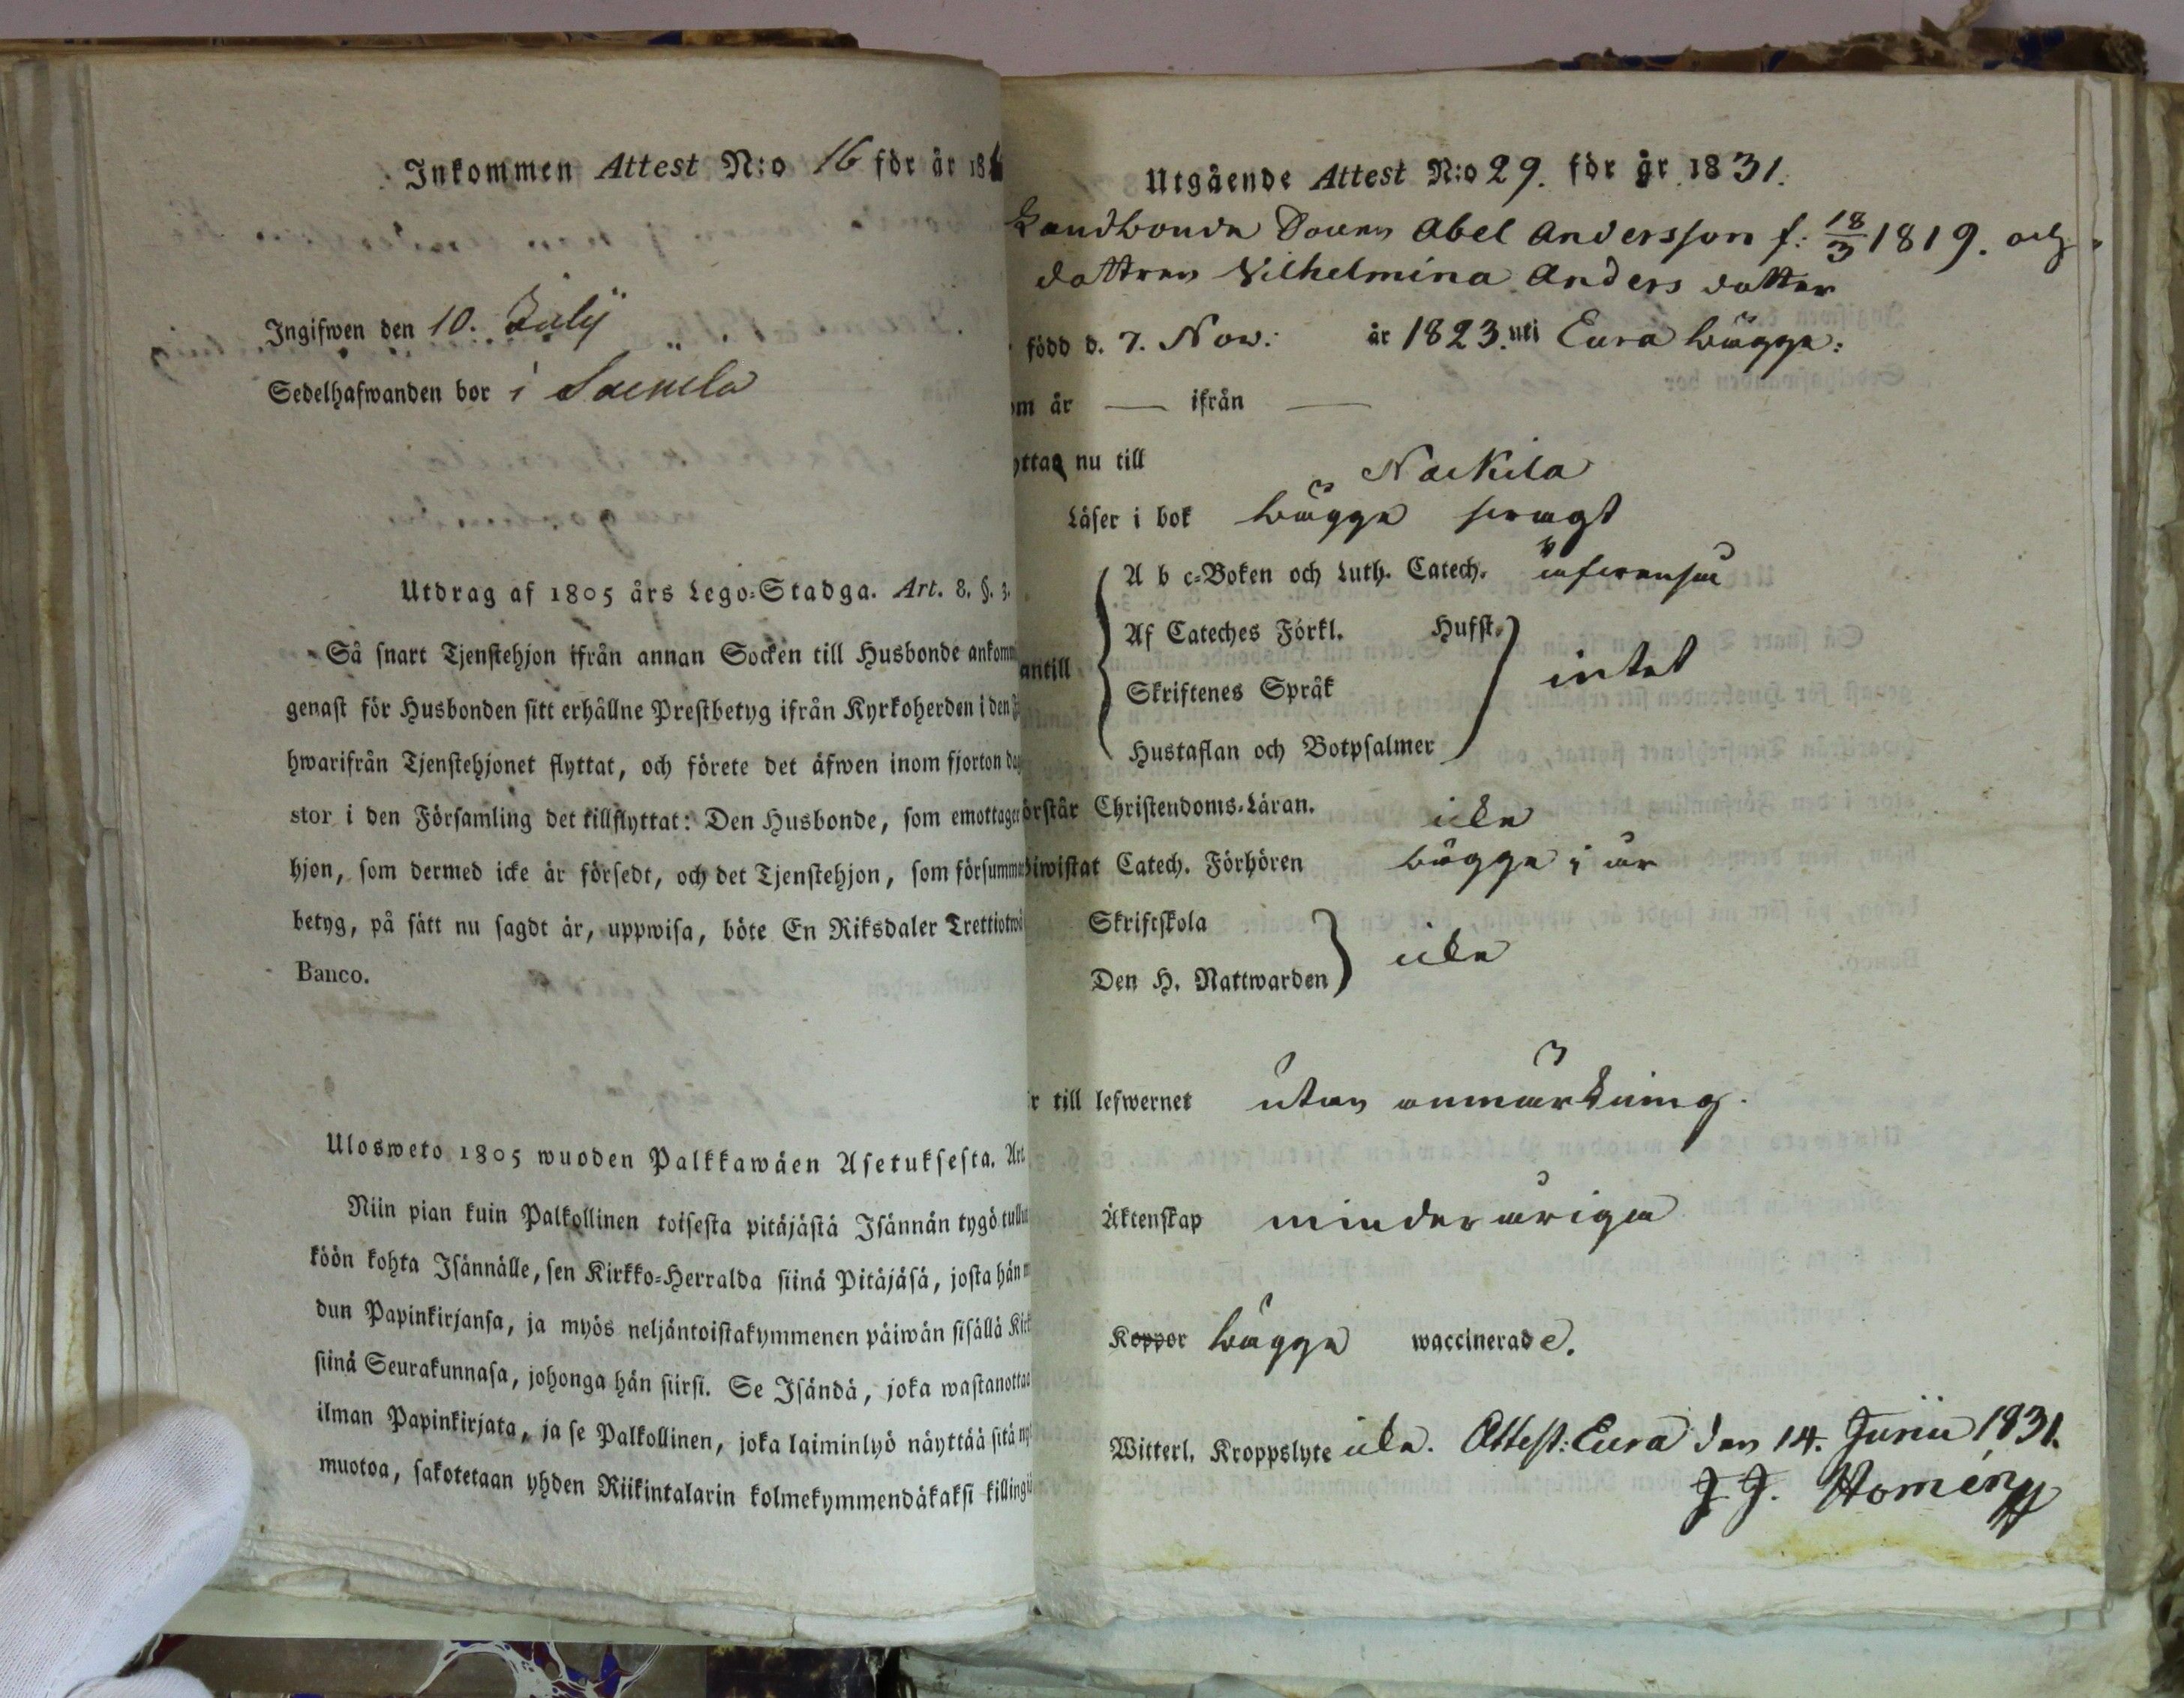 Inkommen Attest N:o 16 för år 18
Ingifwen den 10. Julij
Sedelhafwanden bor i
Utdrag af 1805 års Lego-Stadga. Art. 8. §. 3.
Så snart Tjenstehjon ifrån annan Socken till Husbonde ankomm
genast för Husbonden sitt erhållne Prestbetyg ifrån Kyrkoherden i den
hwarifrån Tjenstehjonet flyttat, och förete det äfwen inom fjorton da
stor i den Församling det tillflyttat: Den Husbonde, som emottager
hjon, som dermed icke är försedt, och det Tjenstehjon, som försumm
betyg, på sätt nu sagdt är, uppwisa, böte En Riksdaler Trettiotw
Banco.
Ulosweto 1805 wuoden Palkkawäen Asetuksesta. Art
Niin pian kuin Palkollinen toisesta pitäjästä Isännän tygö tullu
köön kohta Isännälle, sen Kirkko-Herralda siinä Pitäjäsä, josta hän m
dun Papinkirjansa, ja myös neljäntoistakymmenen päiwän sisällä Kirk
siinä Seurakunnasa, johonga hän siirsi. Se Isändä, joka wastanottaa
ilman Papinkirjata, ja se Palkollinen, joka laiminlyö näyttää sitä ny
muotoa, sakotetaan yhden Riikintalarin kolmekymmendäkaksi killingi
Utgående Attest N:o 29. för år 1831.
Landbonde Sonen Abel Andersson f: 18/3 1819. och
dottren Vilhelmina Anders dotter
född d. 7. Nov: år 1823. uti Eura bägge:
om år — ifrån —
yttar nu till Nakkila
Läser i bok bägge svagt
A b c-Boken och Luth. Catech.
Af Cateches Förkl. Husst.
antill
Skriftenes Språk intet
Hustaflan och Botpsalmer
örstår Christendoms-Läran. icke
biwistat Catech. Förhören bägge i år
Skriftskola
Den H. Nattwarden icke
r till lefwernet utan anmärkning.
Äktenskap minderåriga
Koppor bägge waccinerade.
Witterl. Kroppslyte icke. Attest: Eura den 14. Junii 1831.
J. J. Homén